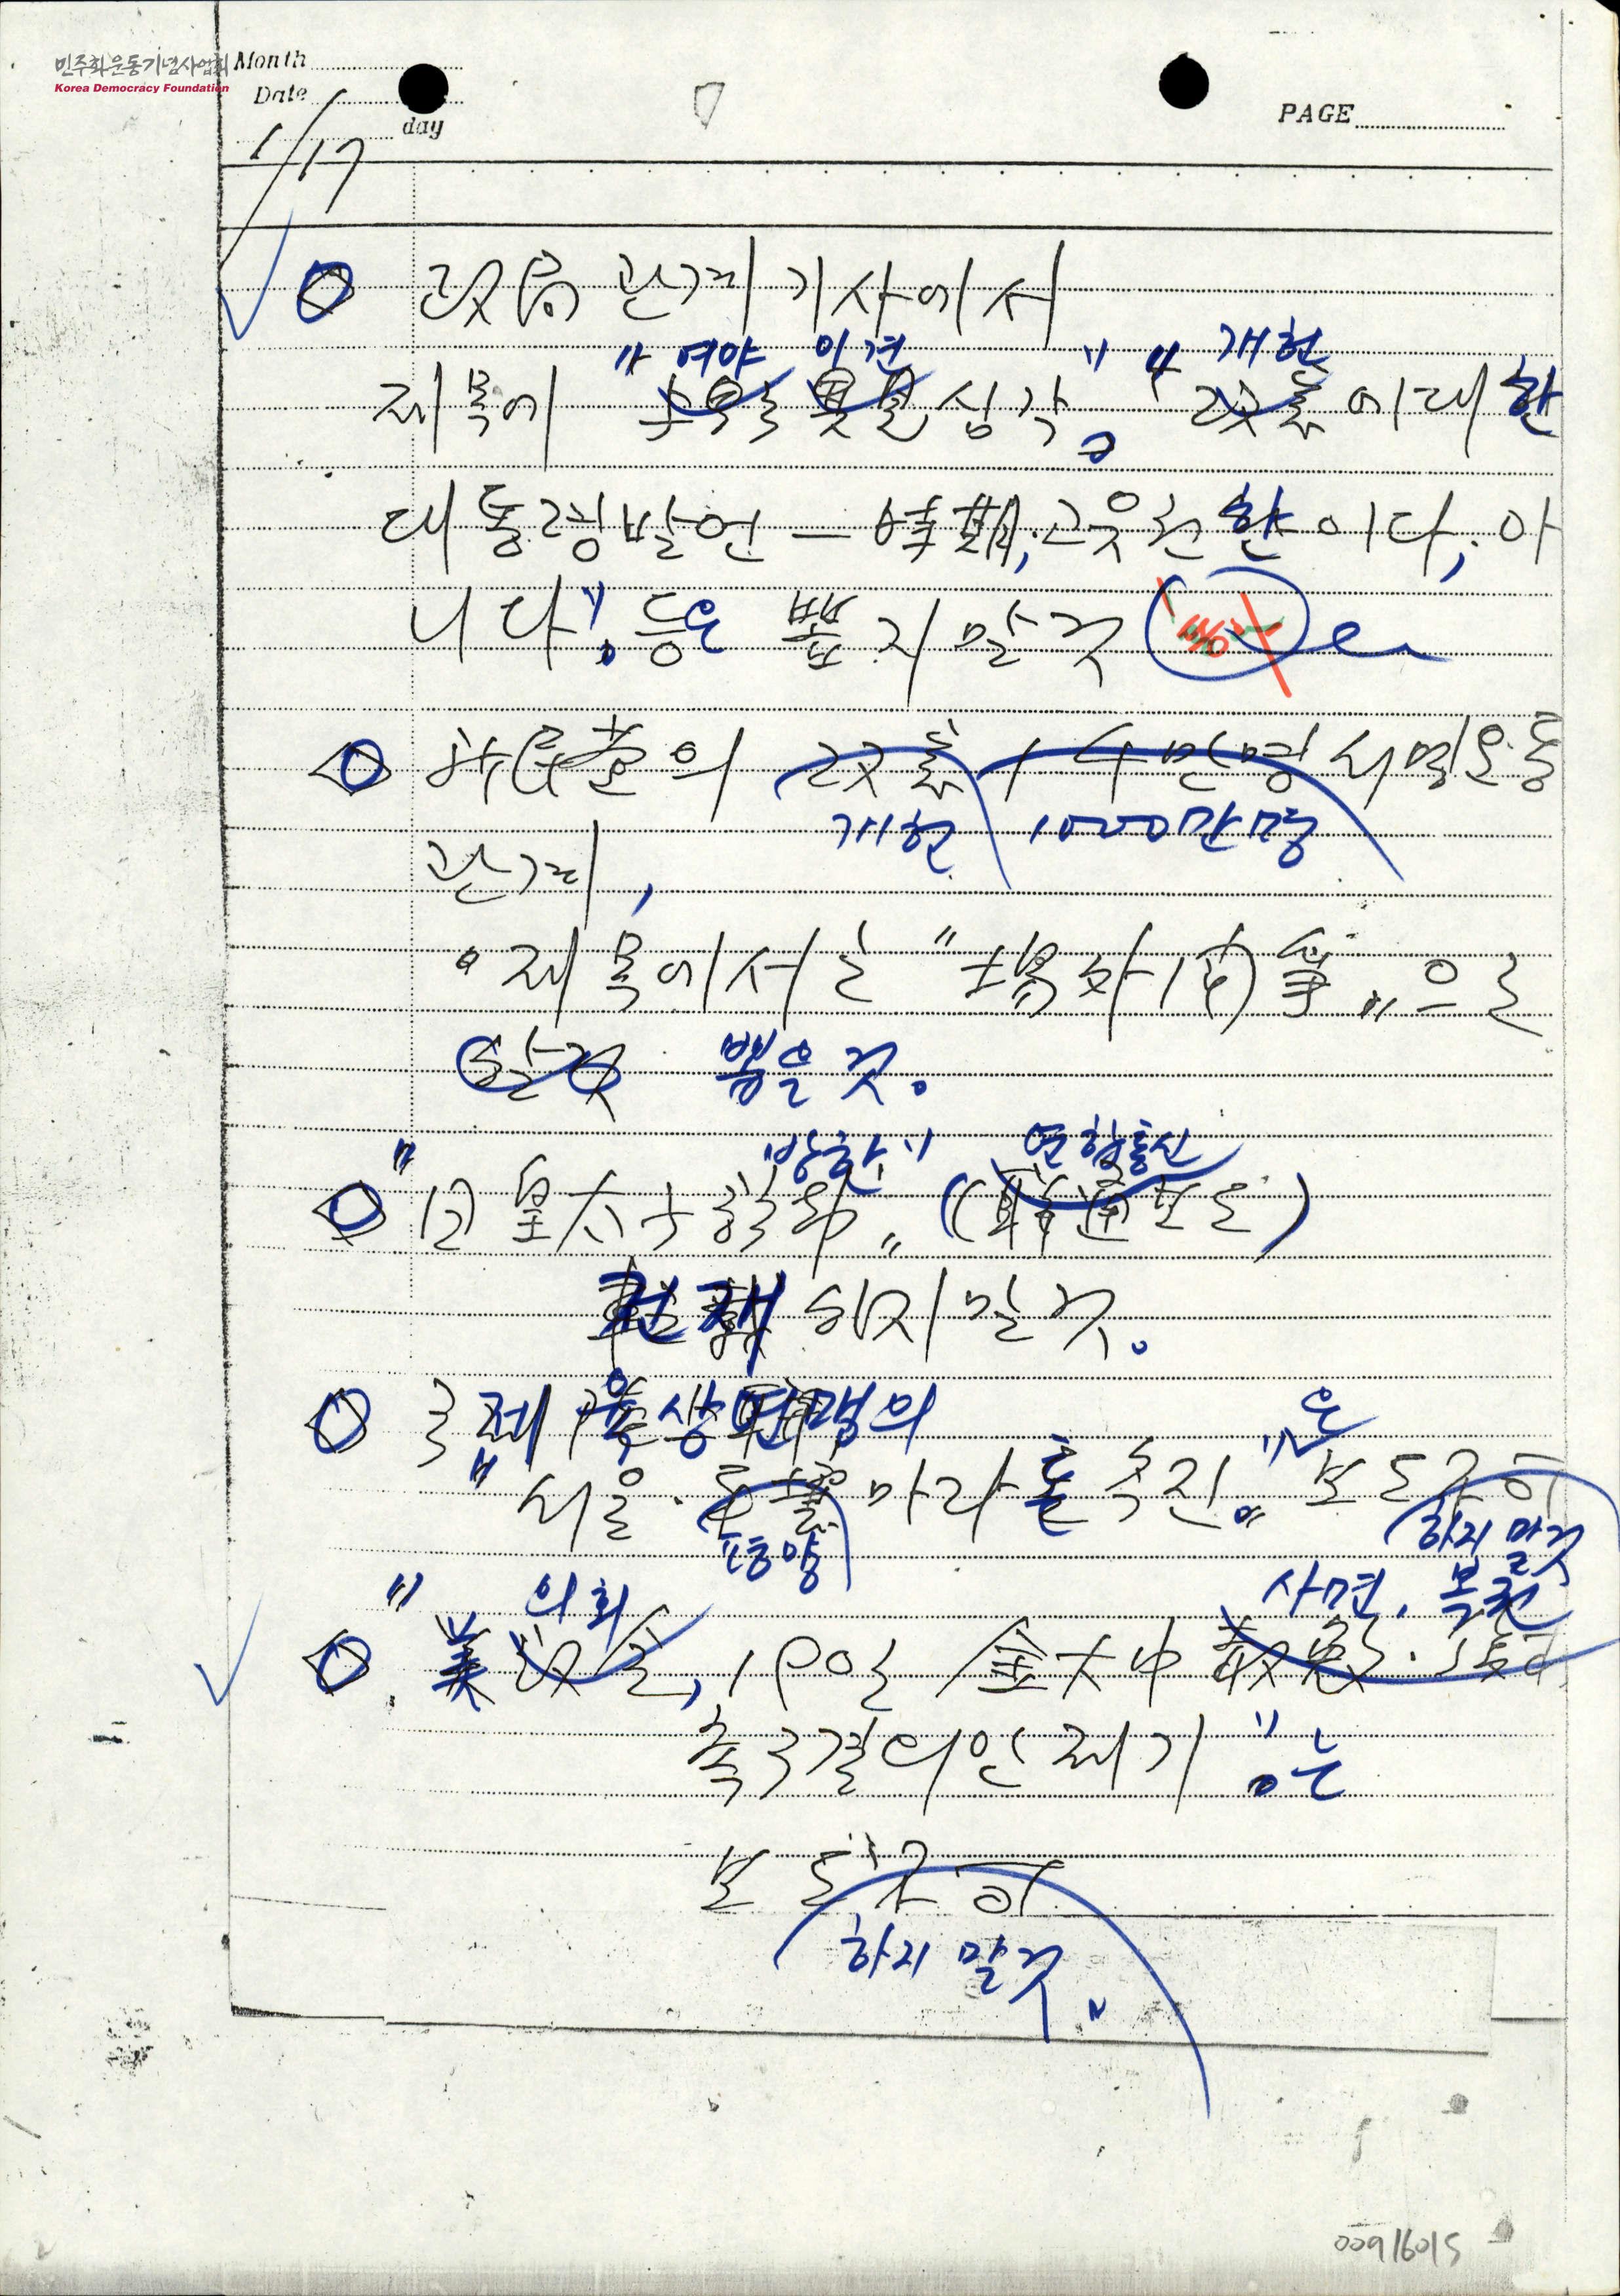 민주화운동기념사업회
Korea Democracy Foundation
Month
Date
day
PAGE
1/17
政局관계 기사에서
" 여야 이견 " " 개헌
제목에 異見 심각 에 대한
대통령 발언 — 時期, 교육원한이다, 아
니다", 등은 뽑지 말 것
新民党의 改憲 1千만명 서명운동
개헌 1000만명
관계,
제목에서는 "場外 争"으로
할 것 뽑을 것.
" "방한" 연합통신
日皇太子 訪韓" (聯合通 보도)
전재 하지 말 것.
국제육상연맹의
은
"서울·平壤 마라톤 추진" 보도不可
평양 하지 말 것
" 의회 사면, 복권
美議会, 10일 金大中 赦免·復
촉구결의안 제기"는
보도不可
하지 말 것.
00916015